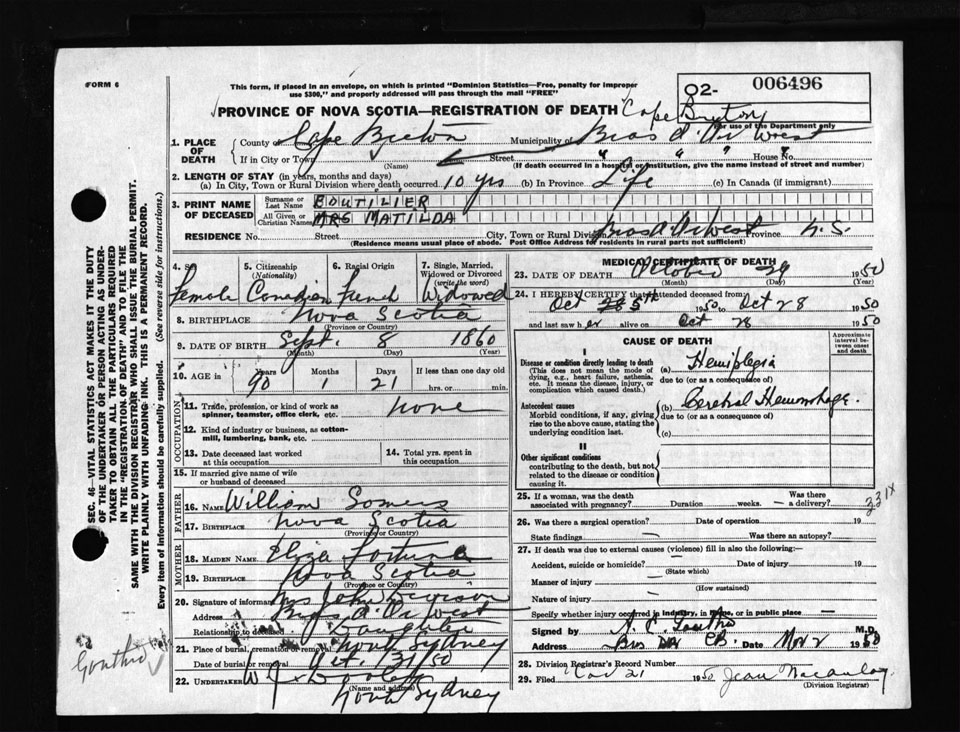 FORM 6
This form, if placed in an envelope, on which is printed "Dominion Statistics—Free, penalty for improper
use $300," and properly addressed will pass through the mail "FREE"
O2- 006496
PROVINCE OF NOVA SCOTIA—REGISTRATION OF DEATH
Cape Breton
For use of the Department only
1. PLACE OF DEATH
County of Cape Breton Municipality of Bras d'Or West
If in City or Town (Name) Street " " " House No. "
(If death occurred in a hospital or institution, give the name instead of street and number)
2. LENGTH OF STAY (in years, months and days)
(a) In City, Town or Rural Division where death occurred 10 yrs (b) In Province Life (c) In Canada (if immigrant)
3. PRINT NAME OF DECEASED
Surname or Last Name BOUTILIER
All Given or Christian Names MRS MATILDA
RESIDENCE No. Street City, Town or Rural Division Bras d'Or West Province N.S.
(Residence means usual place of abode. Post Office Address for residents in rural parts not sufficient)
4. Sex Female
5. Citizenship (Nationality) Canadian
6. Racial Origin French
7. Single, Married, Widowed or Divorced (write the word) Widowed
8. BIRTHPLACE Nova Scotia
(Province or Country)
9. DATE OF BIRTH Sept. 8 1860
(Month) (Day) (Year)
10. AGE in Years Months Days If less than one day old
90 1 21 hrs. or min.
OCCUPATION
11. Trade, profession, or kind of work as spinner, teamster, office clerk, etc. none
12. Kind of industry or business, as cotton-mill, lumbering, bank, etc.
13. Date deceased last worked at this occupation
14. Total yrs. spent in this occupation
15. If married give name of wife or husband of deceased
FATHER
16. NAME William Somers
17. BIRTHPLACE Nova Scotia
(Province or Country)
MOTHER
18. MAIDEN NAME Eliza Fortune
19. BIRTHPLACE Nova Scotia
(Province or Country)
20. Signature of informant Mrs John
Address Bras d'Or West
Relationship to deceased Daughter
21. Place of burial, cremation or removal North Sydney
Date of burial or removal Oct. 31/50
22. UNDERTAKER W
(Name and address)
North Sydney
MEDICAL CERTIFICATE OF DEATH
23. DATE OF DEATH October 29 1950
(Month) (Day) (Year)
24. I HEREBY CERTIFY that I attended deceased from:
Oct 5th 1950 to Oct 28 1950
and last saw her alive on Oct 28 1950
CAUSE OF DEATH
Approximate interval between onset and death
I
Disease or condition directly leading to death
(This does not mean the mode of dying, e.g., heart failure, asthenia, etc. It means the disease, injury, or complication which caused death.)
(a) Hemiplegia
due to (or as a consequence of)
Antecedent causes
Morbid conditions, if any, giving rise to the above cause, stating the underlying condition last.
(b) Cerebral Hemorrhage.
due to (or as a consequence of)
(c)
II
Other significant conditions
contributing to the death, but not related to the disease or condition causing it.
25. If a woman, was the death associated with pregnancy? Duration weeks. Was there a delivery?
331X
26. Was there a surgical operation? Date of operation 19
State findings Was there an autopsy?
27. If death was due to external causes (violence) fill in also the following:—
Accident, suicide or homicide? Date of injury 19
(State which)
Manner of injury
(How sustained)
Nature of injury
Specify whether injury occurred in industry, in home, or in public place
Signed by M.D.
Address Bras d'Or C.B. Date Nov 2 1950
28. Division Registrar's Record Number
29. Filed Nov 21 1950 Jean Macaulay
(Division Registrar)
SEC. 46—VITAL STATISTICS ACT MAKES IT THE DUTY
OF THE UNDERTAKER OR PERSON ACTING AS UNDER-
TAKER TO OBTAIN ALL THE PARTICULARS REQUIRED
IN THE "REGISTRATION OF DEATH" AND TO FILE THE
SAME WITH THE DIVISION REGISTRAR WHO SHALL ISSUE THE BURIAL PERMIT.
WRITE PLAINLY WITH UNFADING INK. THIS IS A PERMANENT RECORD.
Every item of information should be carefully supplied. (See reverse side for instructions.)